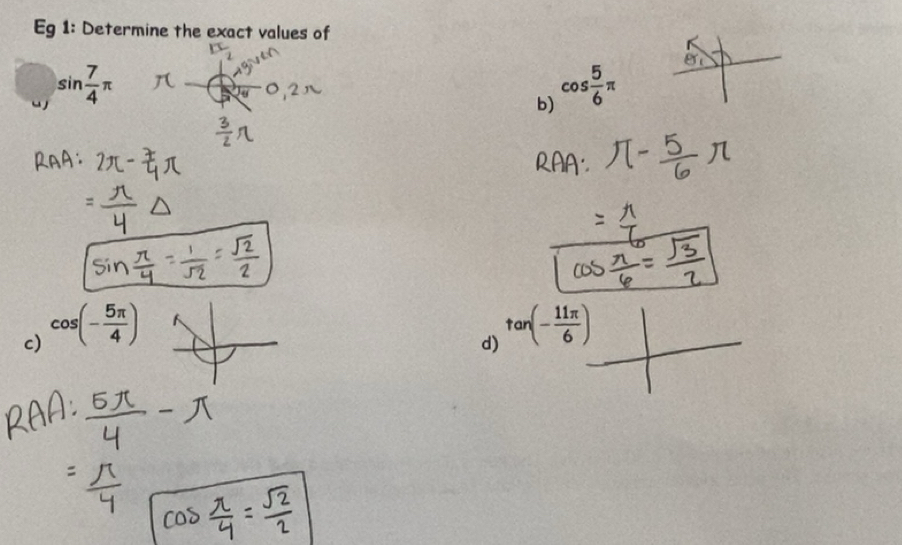 Eg 1: Determine the exact values of
sin 7/4 π
π/2
given
π
0, 2π
3/2 π
RAA: 2π - 7/4 π
= π/4 △
sin π/4 = 1/√2 = √2/2
b) cos 5/6 π
RAA: π - 5/6 π
= π/6
cos π/6 = √3/2
c) cos(-5π/4)
RAA: 5π/4 - π
= π/4
cos π/4 = √2/2
d) tan(-11π/6)